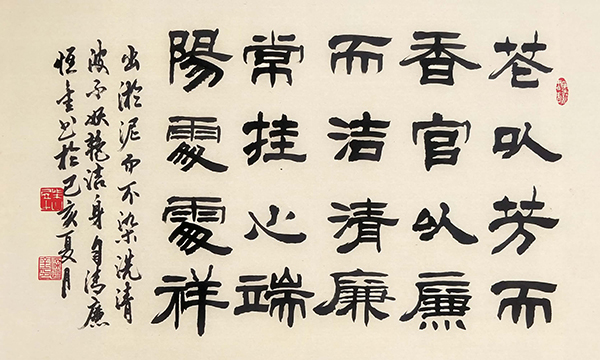 花以芳而
香官以廉
而洁清廉
常挂心端
陽處處祥
出淤泥而不染洗清
波不妖艳洁身自清廉
恒书於己亥夏月